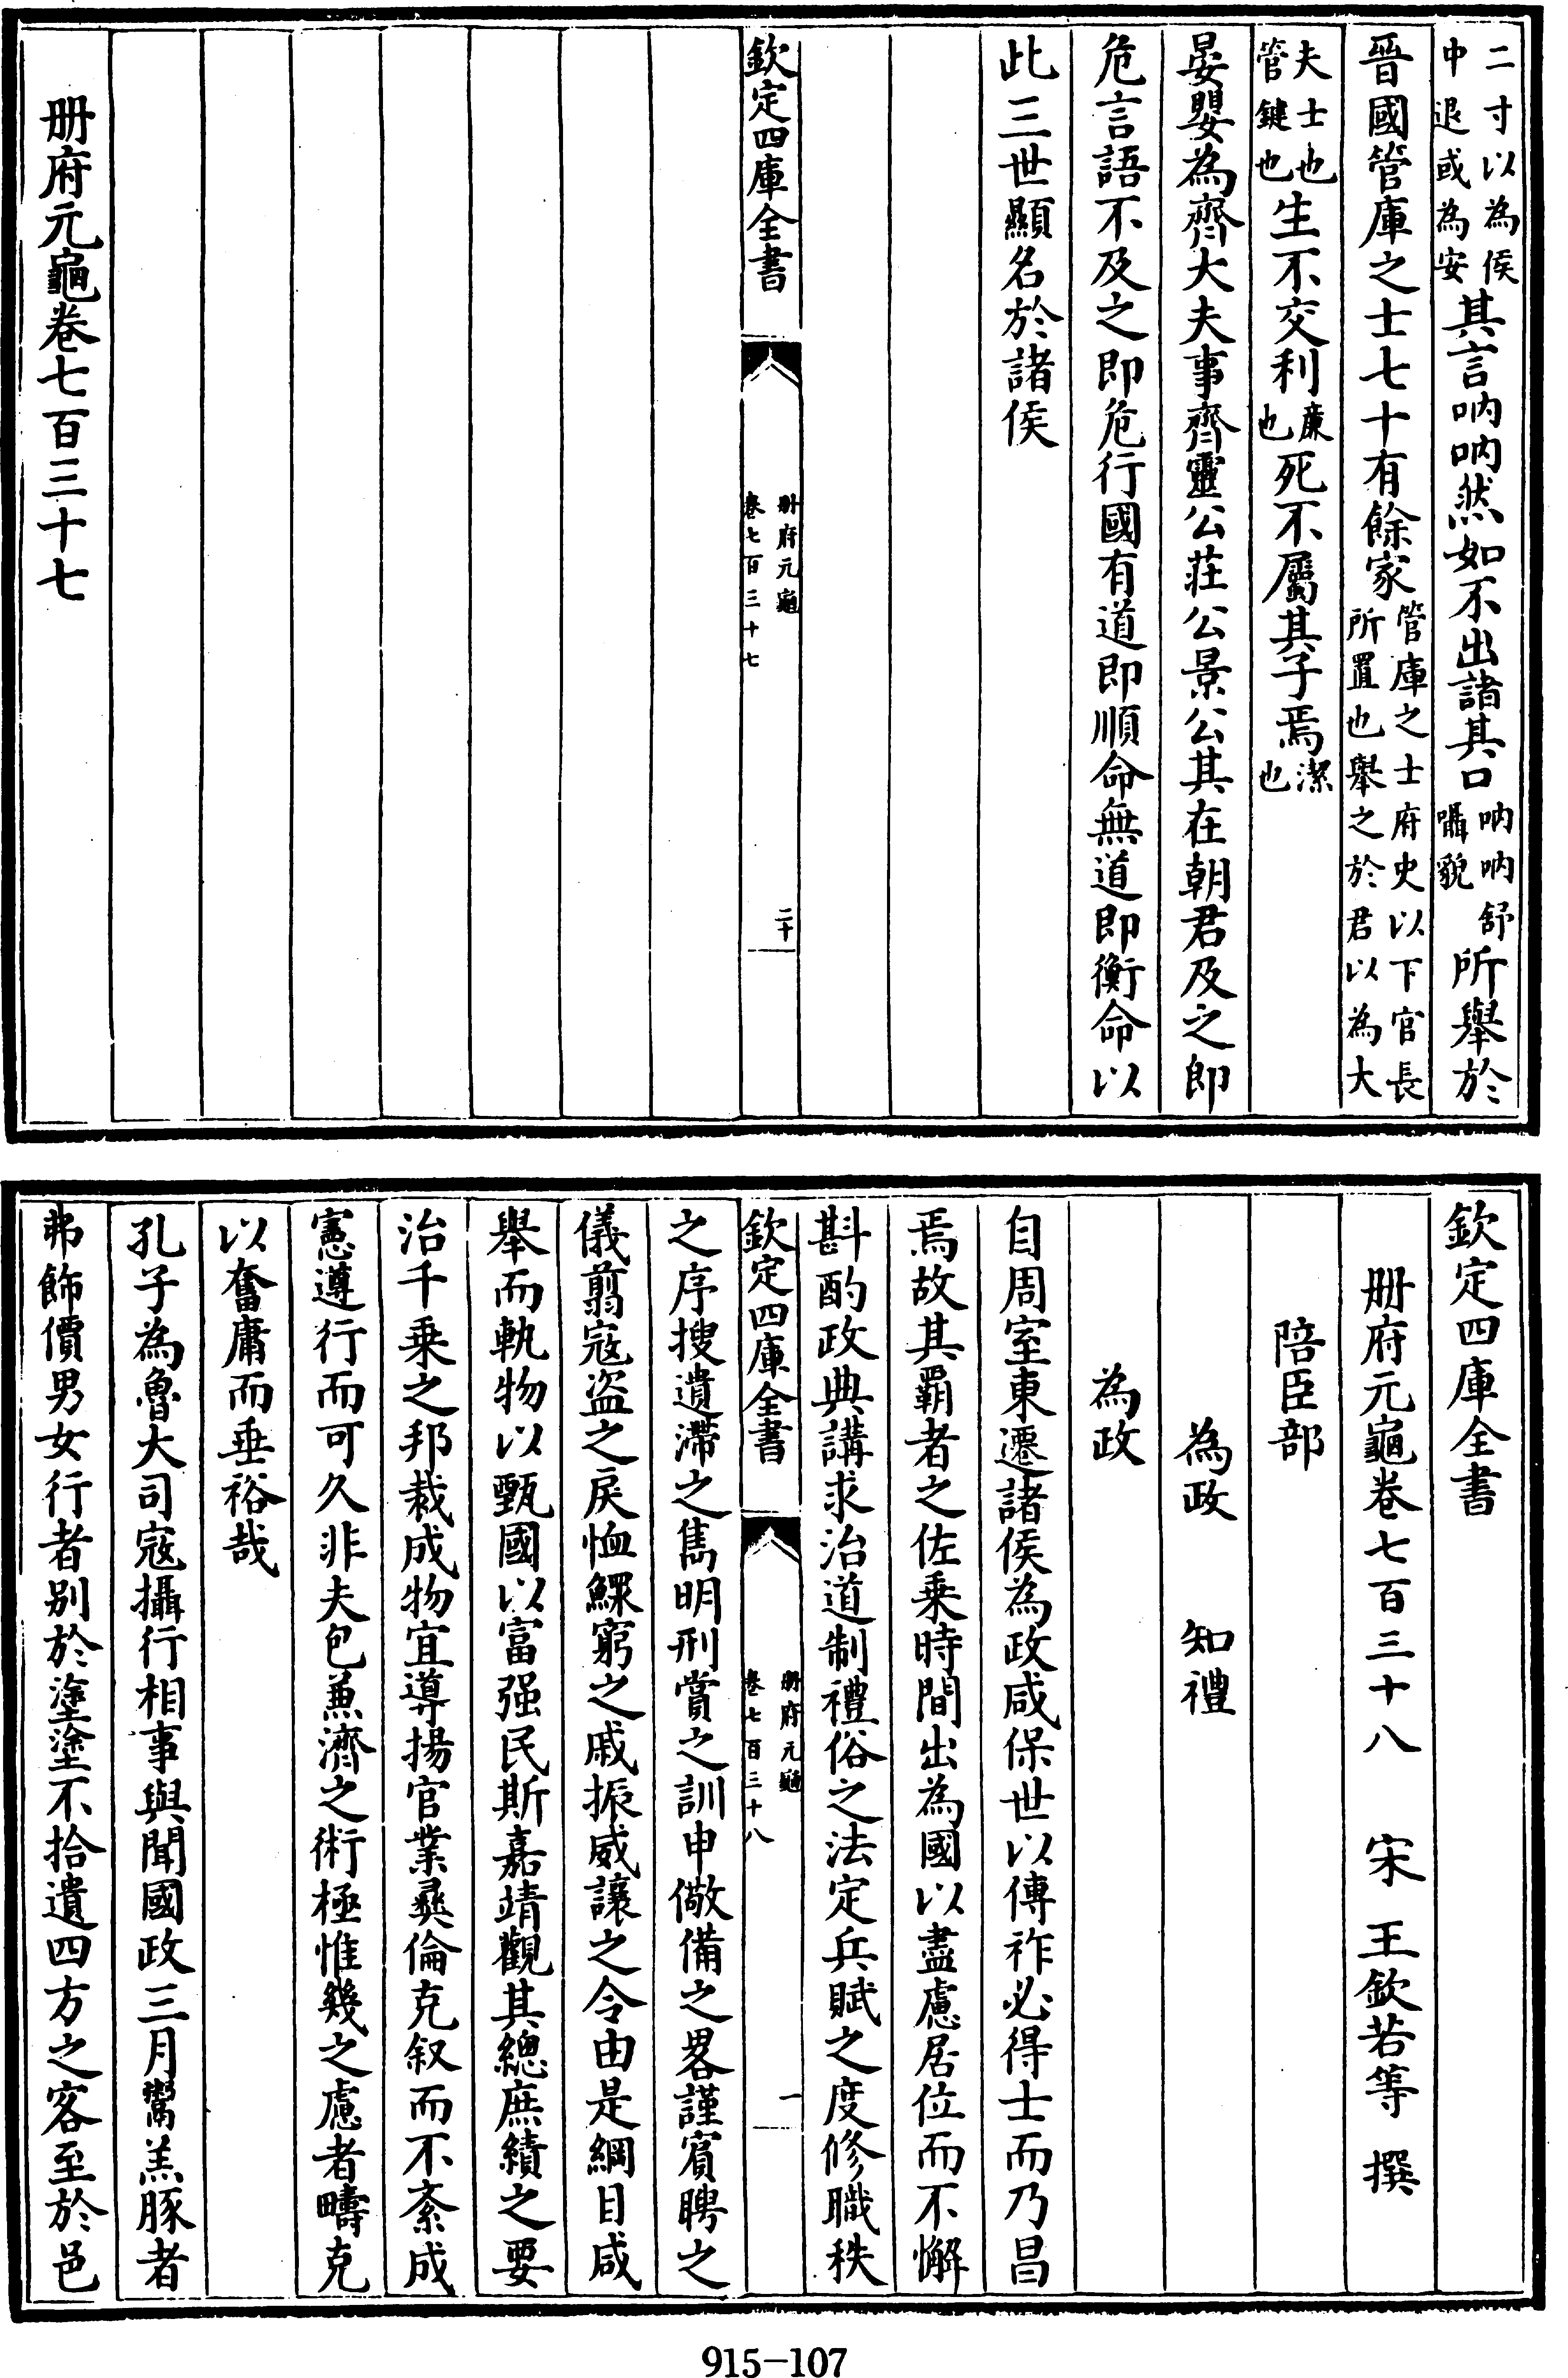 二寸以為侯中退或為安其言吶吶然如不出諸其口吶吶舒囁貌所舉於
晉國管庫之士七十有餘家管庫之士府史以下官長所置也舉之於君以為大
夫士也管鍵也生不交利廉也死不屬其子焉潔也
晏嬰為齊大夫事齊靈公莊公景公其在朝君及之即
危言語不及之即危行國有道即順命無道即衡命以
此三世顯名於諸侯
欽定四庫全書
冊府元龜
卷七百三十七
二十
冊府元龜卷七百三十七
欽定四庫全書
冊府元龜卷七百三十八 宋 王欽若等 撰
陪臣部
為政 知禮
為政
自周室東遷諸侯為政咸保世以傳祚必得士而乃昌
焉故其霸者之佐乘時間出為國以盡慮居位而不懈
斟酌政典講求治道制禮俗之法定兵賦之度修職秩
欽定四庫全書
冊府元龜
卷七百三十八
一
之序搜遺滯之雋明刑賞之訓申儆備之畧謹賓聘之
儀翦寇盜之戾恤鰥窮之戚振威讓之令由是綱目咸
舉而軌物以甄國以富强民斯嘉靖觀其總庶績之要
治千乘之邦裁成物宜導揚官業彝倫克叙而不紊成
憲遵行而可久非夫包兼濟之術極惟幾之慮者疇克
以奮庸而垂裕哉
孔子為魯大司寇攝行相事與聞國政三月鬻羔豚者
弗飾價男女行者别於塗塗不拾遺四方之客至於邑
915-107